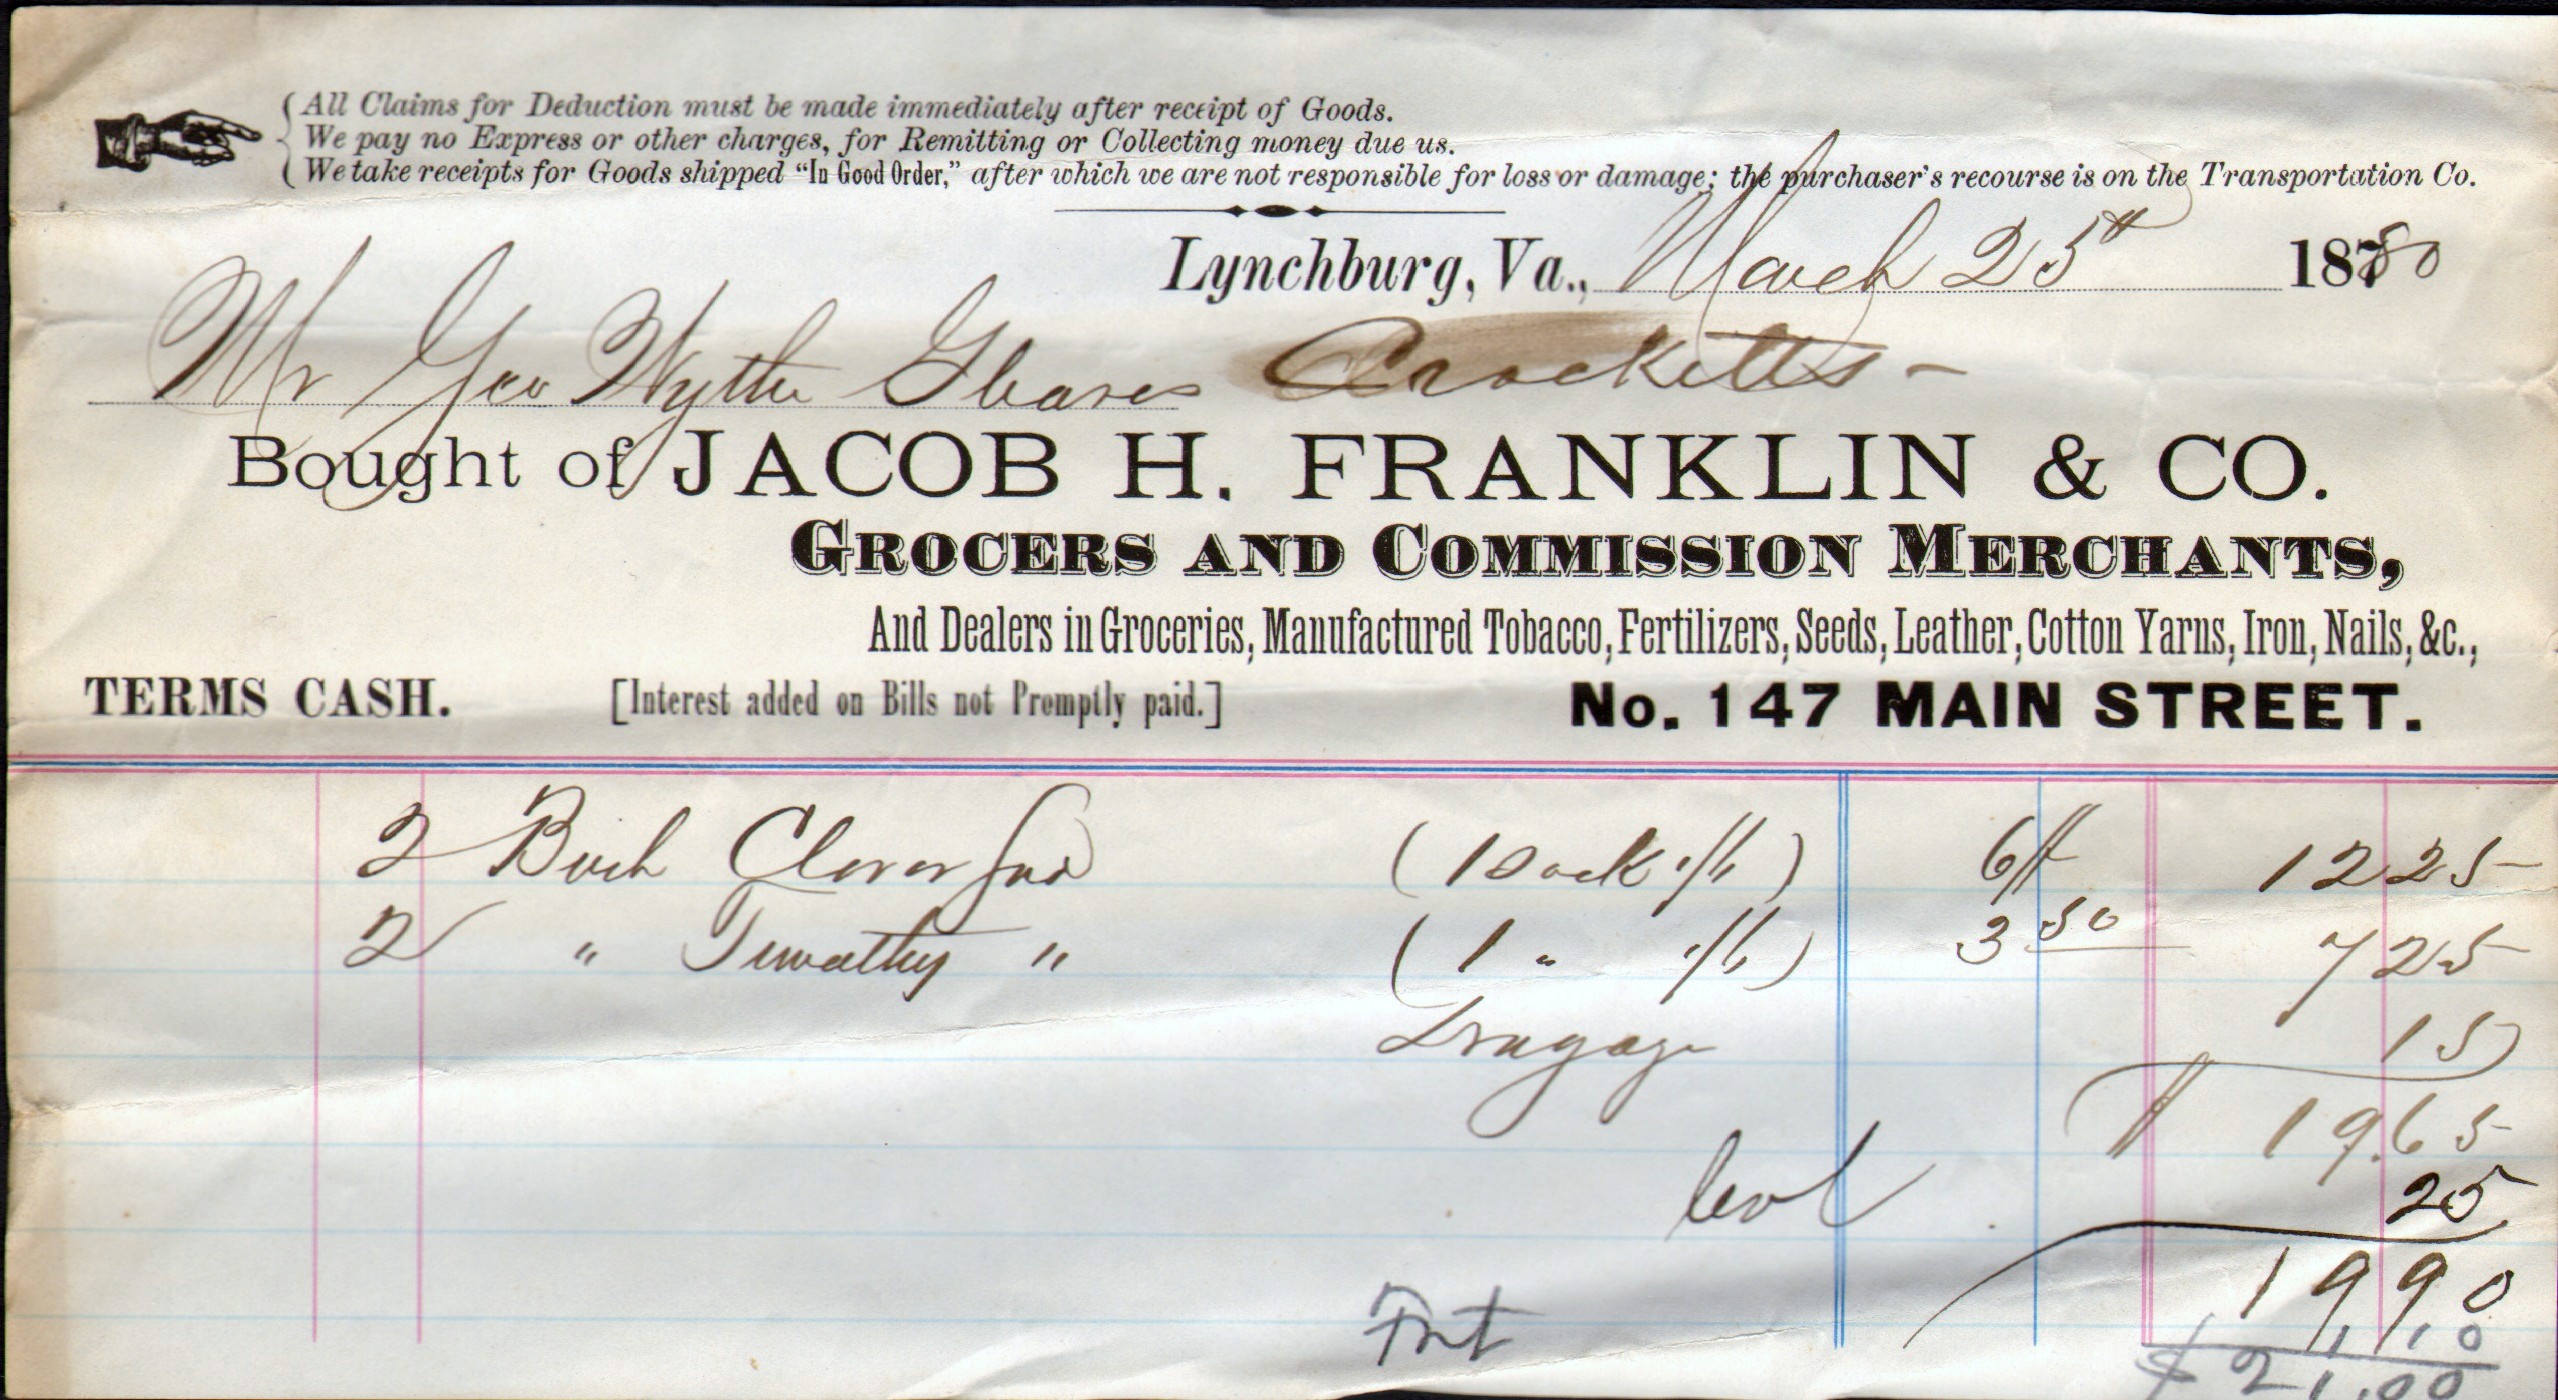 All Claims for Deduction must be made immediately after receipt of Goods.
We pay no Express or other charges, for Remitting or Collecting money due us.
We take receipts for Goods shipped "In Good Order," after which we are not responsible for loss or damage; the purchaser's recourse is on the Transportation Co.
Lynchburg, Va., March 25th 1880
Mr Geo Wythe Gleaves Crocketts -
Bought of JACOB H. FRANKLIN & CO.
GROCERS AND COMMISSION MERCHANTS,
And Dealers in Groceries, Manufactured Tobacco, Fertilizers, Seeds, Leather, Cotton Yarns, Iron, Nails, &c.,
TERMS CASH. [Interest added on Bills not Promptly paid.] No. 147 MAIN STREET.
2 Bush Clover Seed (1 Sack) 6 12 25
2 " Timothy " (1 ") 3 50 7 25
Drayage 15
19.65
25
19 90
Frt 1 10
$21.00